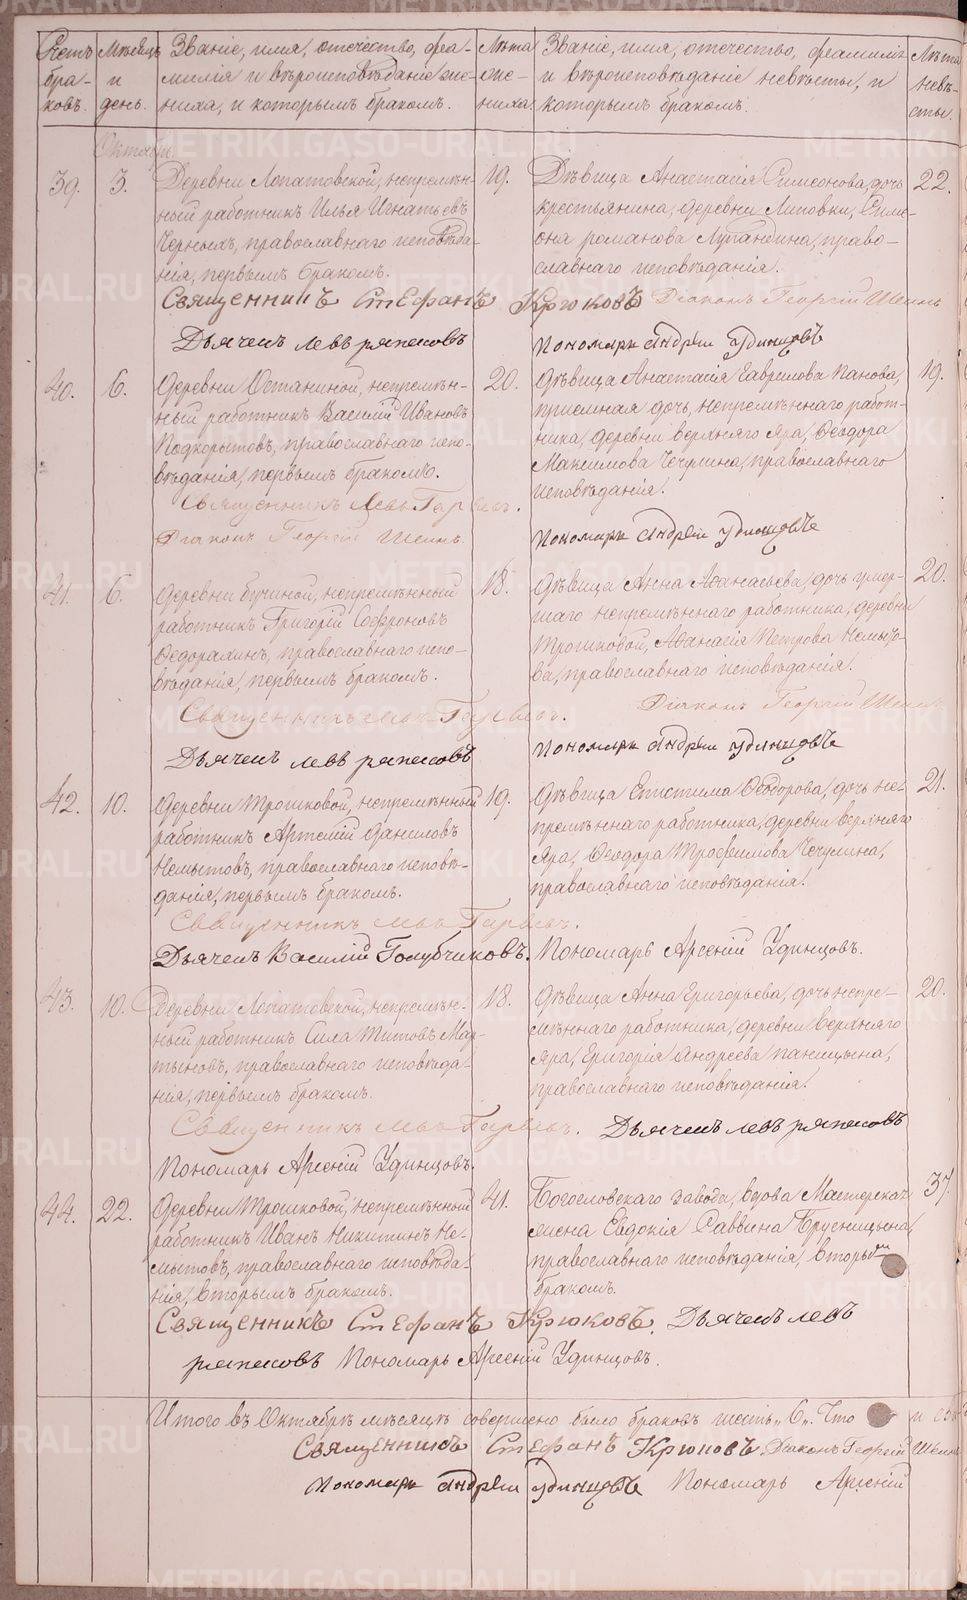 Счетъ браковъ.
Мѣсяцъ и день.
Званіе, имя, отечество, фамилія и вѣроисповѣданіе жениха, и которымъ бракомъ.
Лѣта жениха
Званіе, имя, отечество, фамилія и вѣроисповѣданіе невѣсты, и которымъ бракомъ.
Лѣта невѣсты.
Октябрь.
39. 3. Деревни Лопатовской, непремѣн-
ный работникъ Илья Игнатьевъ
Черныхъ, православнаго исповѣда-
нія, первымъ бракомъ.
19.
Дѣвица Анастасія Симеонова, дочь
крестьянина, деревни Липовки, Симе-
она Романова Лупандина, право-
славнаго исповѣданія.
22.
Священникъ Стефанъ Крюковъ Діаконъ Георгій
Дьячекъ Левъ Ряпасовъ Пономарь Андрей Удинцовъ
40. 6. Деревни Останиной, непремѣн-
ный работникъ Василій Ивановъ
Подкорытовъ, православнаго испо-
вѣданія, первымъ бракомъ.
20.
Дѣвица Анастасія Гаврилова Панова,
приемная дочь, непремѣннаго работ-
ника, деревни Верхняго Яра, Ѳеодора
Максимова Чечулина, православнаго
исповѣданія.
19.
Священникъ Левъ
Діаконъ Георгій Пономарь Андрей Удинцовъ
41. 6. Деревни Бучиной, непремѣнный
работникъ Григорій Софроновъ
Ѳедорахинъ, православнаго испо-
вѣданія, первымъ бракомъ.
18.
Дѣвица Анна Аѳанасьева, дочь умер-
шаго непремѣннаго работника, деревни
Трошковой, Аѳанасія Петрова Немыто-
ва, православнаго исповѣданія.
20.
Священникъ Левъ Діаконъ Георгій
Дьячекъ Левъ Ряпасовъ Пономарь Андрей Удинцовъ
42. 10. Деревни Трошковой, непремѣнный
работникъ Артемій Даниловъ
Немытовъ, православнаго исповѣ-
данія, первымъ бракомъ.
19.
Дѣвица Епистима Ѳеодорова, дочь не-
премѣннаго работника, деревни Верхняго
Яра, Ѳеодора Трофимова Чечулина,
православнаго исповѣданія.
21.
Священникъ Левъ
Дьячекъ Василій Голубчиковъ. Пономарь Арсеній Удинцовъ.
43. 10. Деревни Лопатовской, непремѣн-
ный работникъ Сила Титовъ Мар-
тыновъ, православнаго исповѣда-
нія, первымъ бракомъ.
18.
Дѣвица Анна Григорьева, дочь непре-
мѣннаго работника, деревни Верхняго
Яра, Григорія Андреева Паницына,
православнаго исповѣданія.
20.
Священникъ Левъ Дьячекъ Левъ Ряпасовъ
Пономарь Арсеній Удинцовъ.
44. 22. Деревни Трошковой, непремѣнный
работникъ Иванъ Никитинъ Не-
мытовъ, православнаго исповѣда-
нія, вторымъ бракомъ.
41.
Богословскаго завода, вдова Мастерская
жена Евдокія Саввина Брусницына,
православнаго исповѣданія, вторымъ
бракомъ.
37.
Священникъ Стефанъ Крюковъ. Дьячекъ Левъ
Ряпасовъ Пономарь Арсеній Удинцовъ.
Итого въ Октябрѣ мѣсяцѣ совершено было браковъ шесть „6„. Что
Священникъ Стефанъ Крюковъ Діаконъ Георгій
Пономарь Андрей Удинцовъ Пономарь Арсеній
METRIKI.GASO-URAL.RU